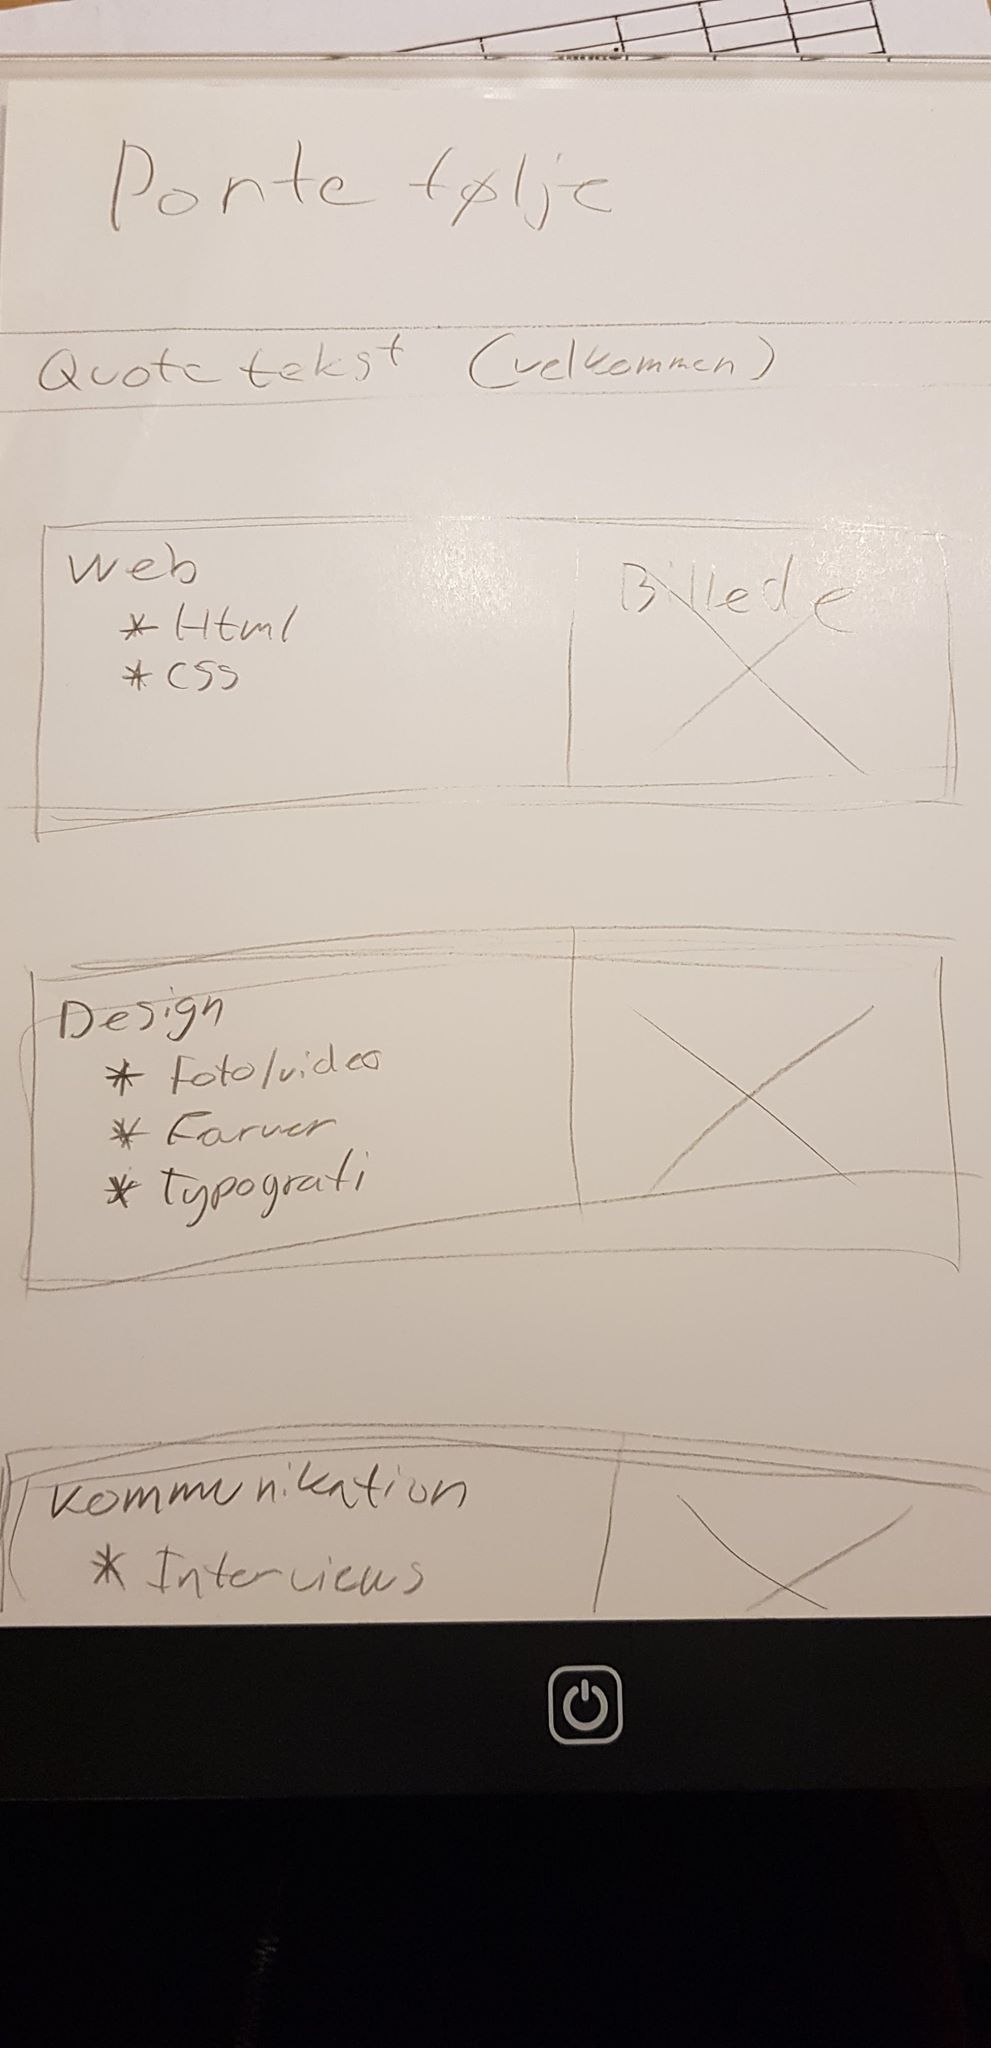 Porte følje
Quote tekst (velkommen)
Web
* Html
* CSS
Billede
Design
* Foto/video
* Farver
* Typografi
Kommunikation
* Interviews